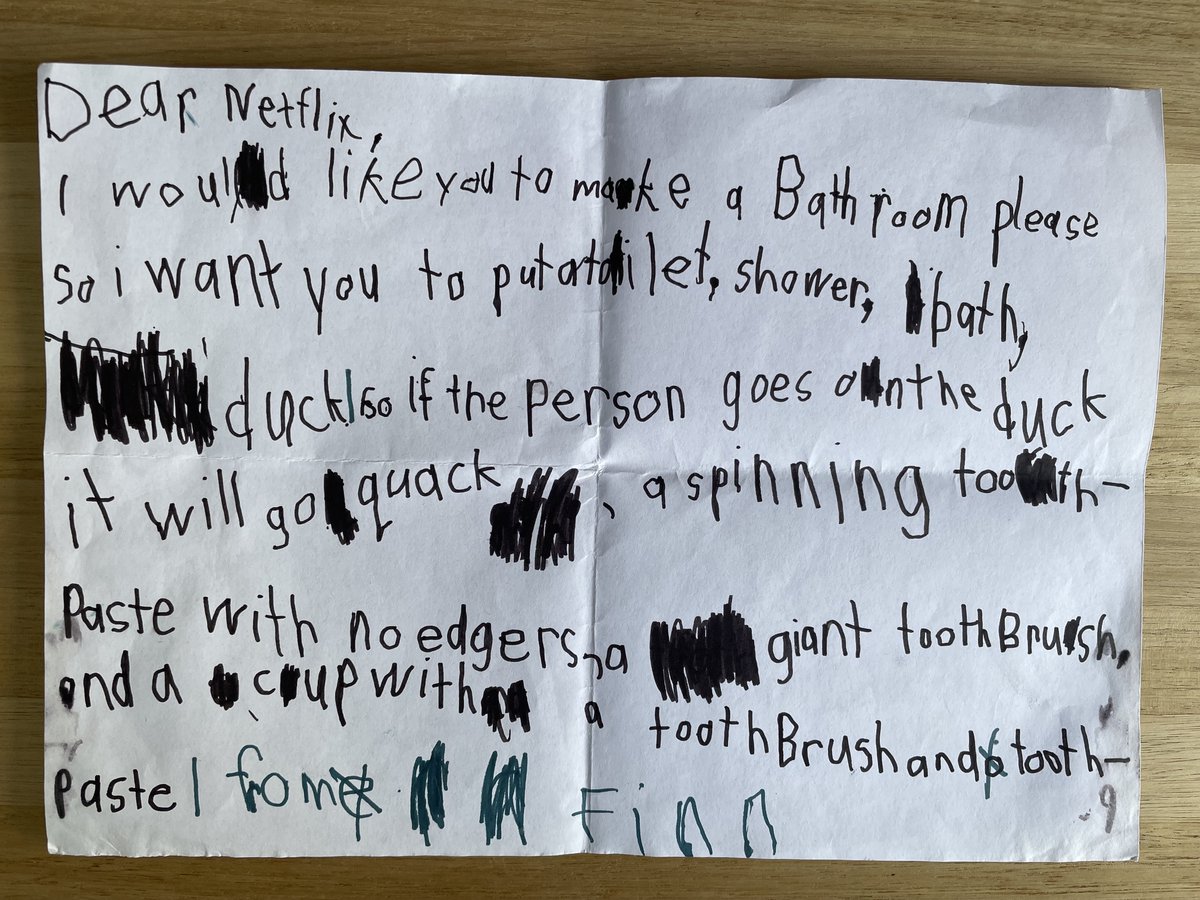 Dear Netflix,
I would like you to make a Bathroom please
so i want you to put a toilet, shower, bath,
duck so if the person goes on the duck
it will go quack, a spinning tooth-
Paste with no edgers, a giant toothBrush,
and a cup with a toothBrush and tooth-
paste from Finn